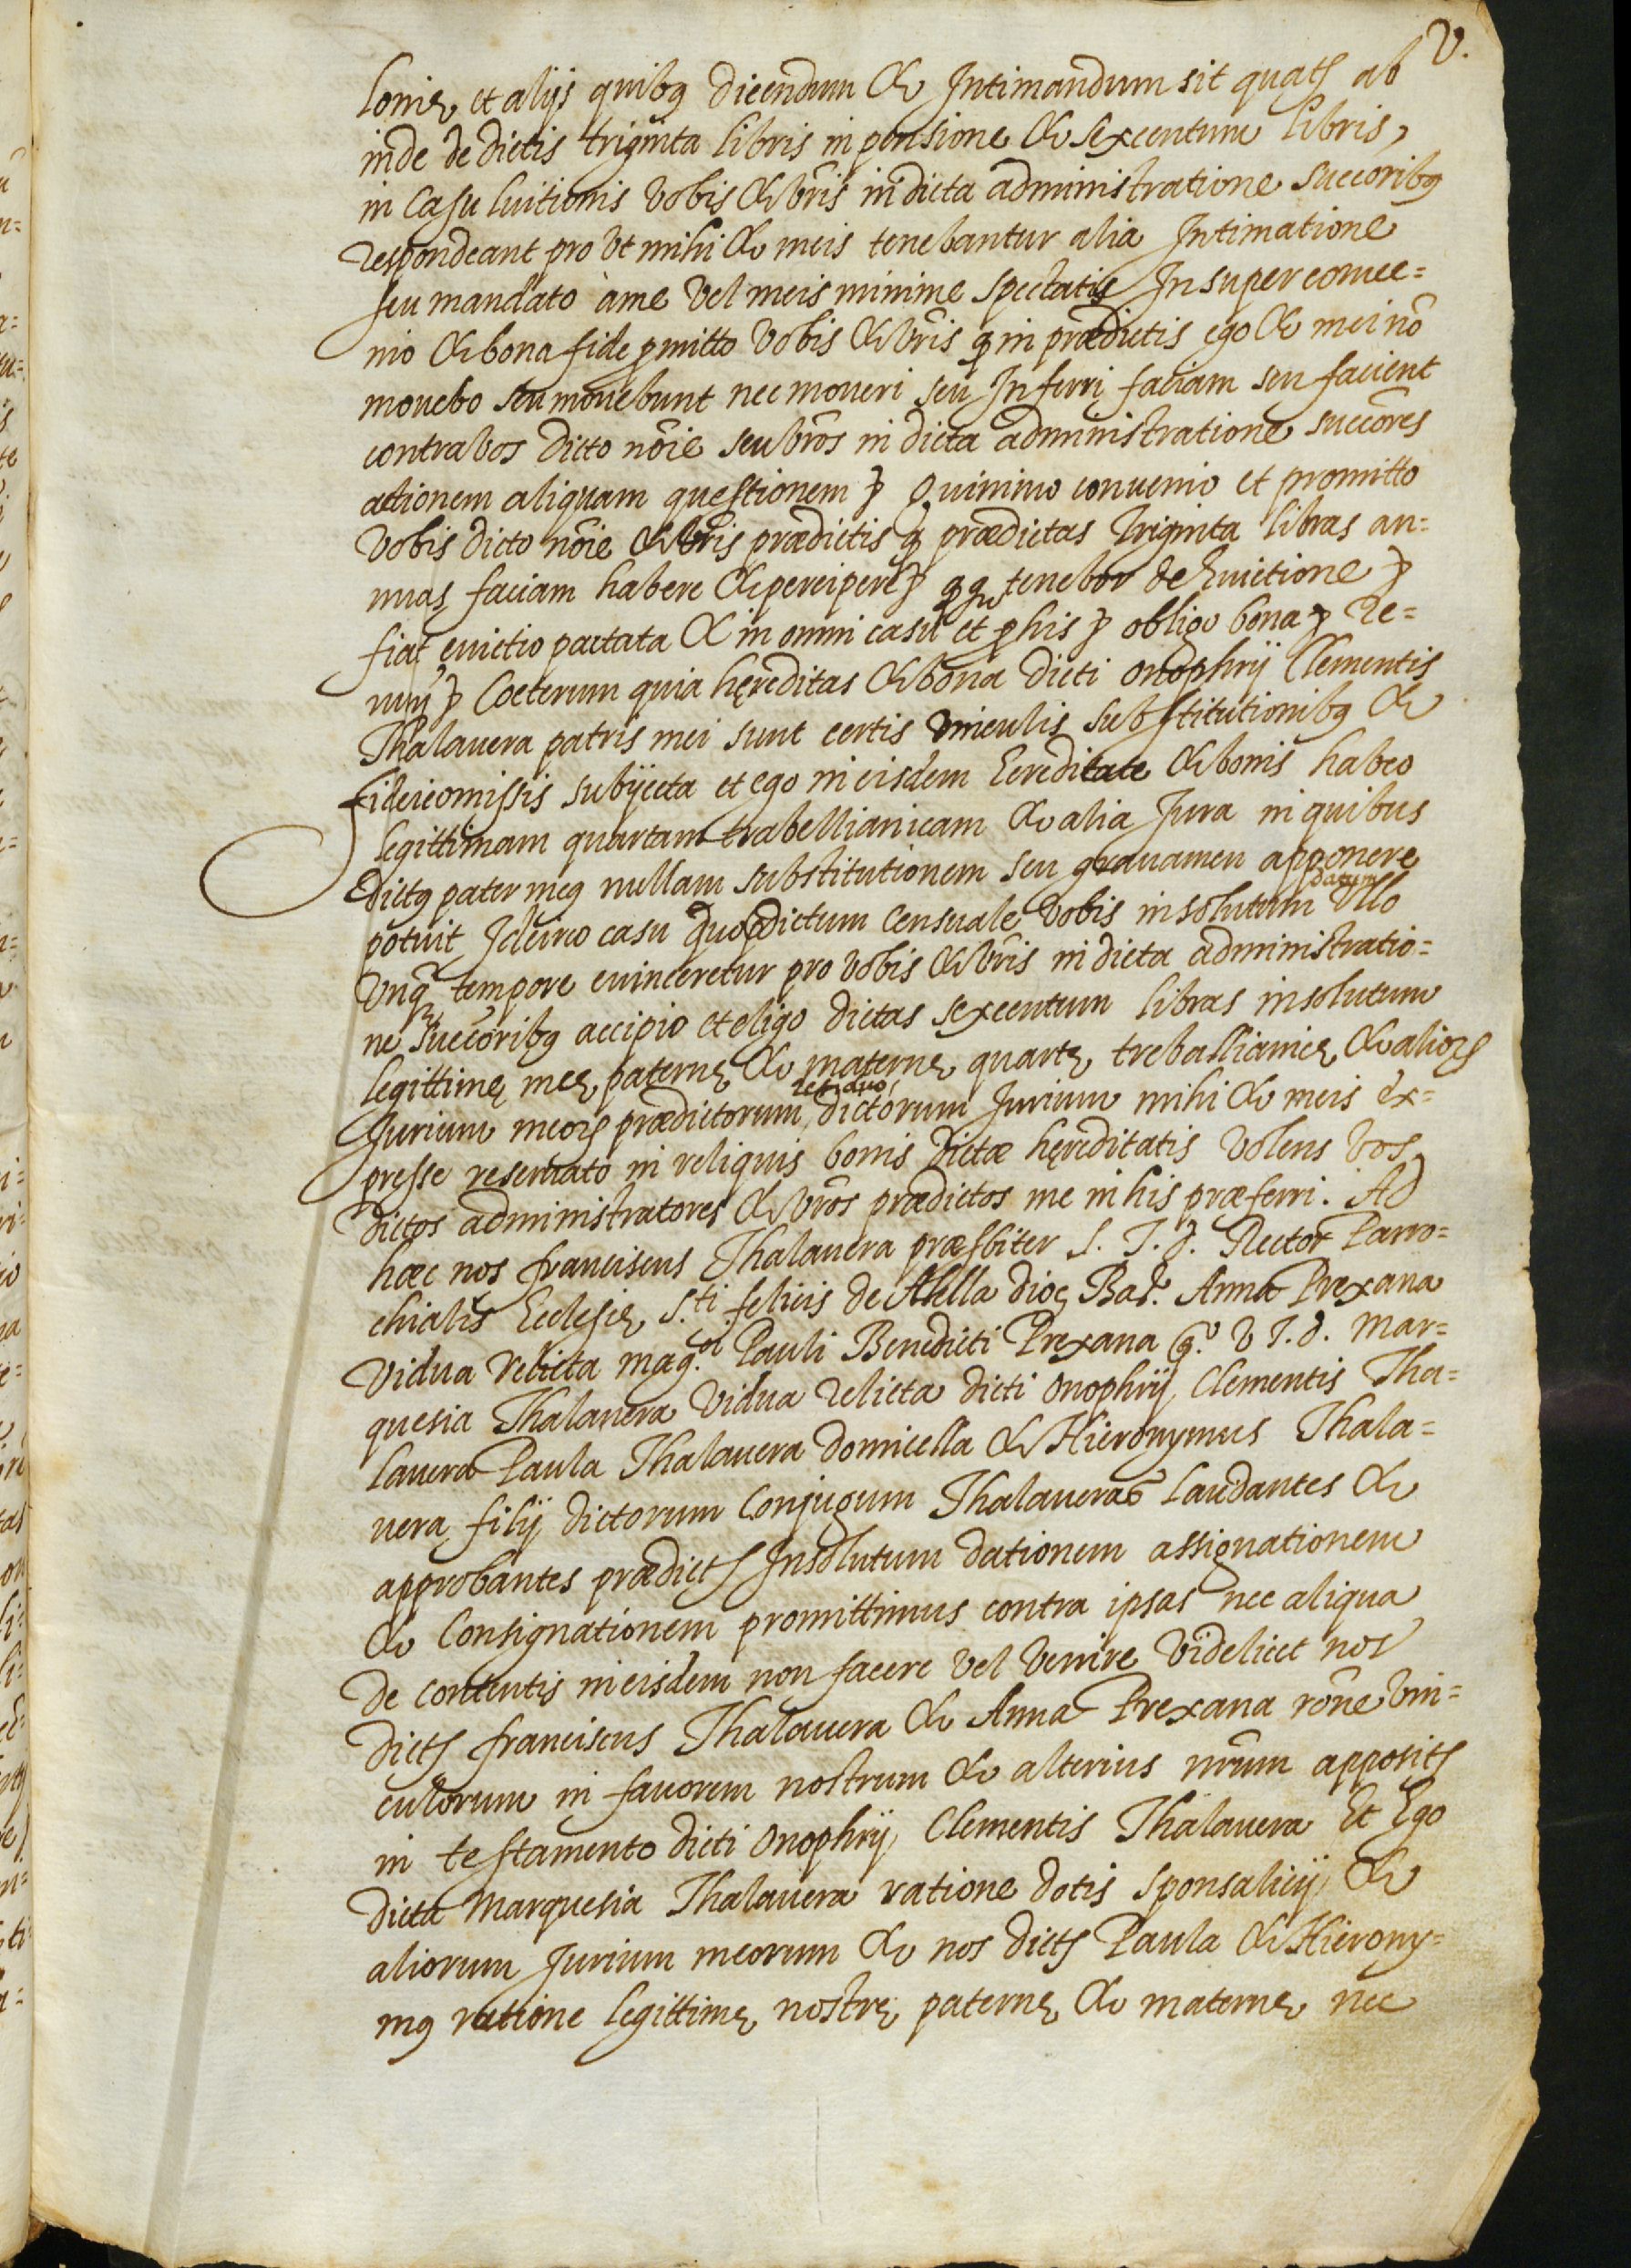 V.
lonię et alijs quibꝫ dicendum & Intimandum sit quatꝭ ab
inde de dictis triginta libris in pensione & sexcentum libris,
in casu luitionis vobis & vr̃is in dicta administratione succoribꝫ
respondeant pro vt mihi & meis tenebantur alia Intimatione
seu mandato à me vel meis minime spectatis Insuper conue=
nio & bona fide ꝓmitto vobis & vr̃is ꝙ in prædictis ego & mei nõ
mouebo seu mouebunt nec moueri seu Inferri faciam seu facient
contra vos dicto nõie seu vr̃os in dicta administratione succores
actionem aliquam questionem ꝛ Quinimo conuenio et promitto
vobis dicto nõie & vr̃is prædictis ꝙ prædictas triginta libras an=
nuas faciam habere & percipere ꝛ ꝙ tenebor de Euictione ꝛ
fiat euictio pactata & in omni casu et ꝓ his ꝛ obligo bona ꝛ Re=
nun ꝛ Coeterum quia hęreditas & bona dicti onophrij Clementis
Thalauera patris mei sunt certis vinculis substitutionibꝫ &
fideicomissis subijecta et ego in eisdem Eereditate & bonis habeo
legittimam quartam trabellianicam & alia Jura in quibus
dictꝫ pater meꝫ nullam substitutionem seu grauamen apponere
potuit Idcirco casu quo ꝓdictum Censuale vobis insolutum datum vllo
vnq̃ tempore euinceretur pro vobis & vr̃is in dicta administratio=
ne succoribꝫ accipio et eligo dictas sexcentum libras insolutum
legittimę meę paternę & maternę quartę treballianicę & alioꝝ
Jurium meoꝝ prædictorum residuo dictorum Jurium mihi & meis ex=
presse reseruato in reliquis bonis dictæ hęreditatis volens vos
dictos administratores & vr̃os prædictos me in his præferri. Ad
hæc nos franciscus Thalauera præsbiter S. T. d. Rector Parro=
chialis Ecclesię S.ti felicis de Alella dioc̨ Bar̃. Anna Prexana
vidua relicta mag.ci Pauli Benedicti Prexana q.o V I. d. Mar=
quesia Thalauera vidua relicta dicti onophrij Clementis Tha=
lauera Paula Thalauera domicella & Hieronymus Thala=
uera filij dictorum Conjugum Thalaueras Laudantes &
approbantes prædictꝭ Insolutum dationem assignationem
& Consignationem promittimus contra ipsas nec aliqua
de contentis in eisdem non facere vel venire videlicet nos
dictꝭ franciscus Thalauera & Anna Prexana rõne vin=
culorum in fauorem nostrum & alterius nr̃um appositꝭ
in testamento dicti onophrij Clementis Thalauera Et Ego
dicta Marquesia Thalauera ratione dotis sponsalicij &
aliorum Jurium meorum & nos dictꝭ Paula & Hierony=
mꝫ ratione legittimę nostrę paternę & maternę nec